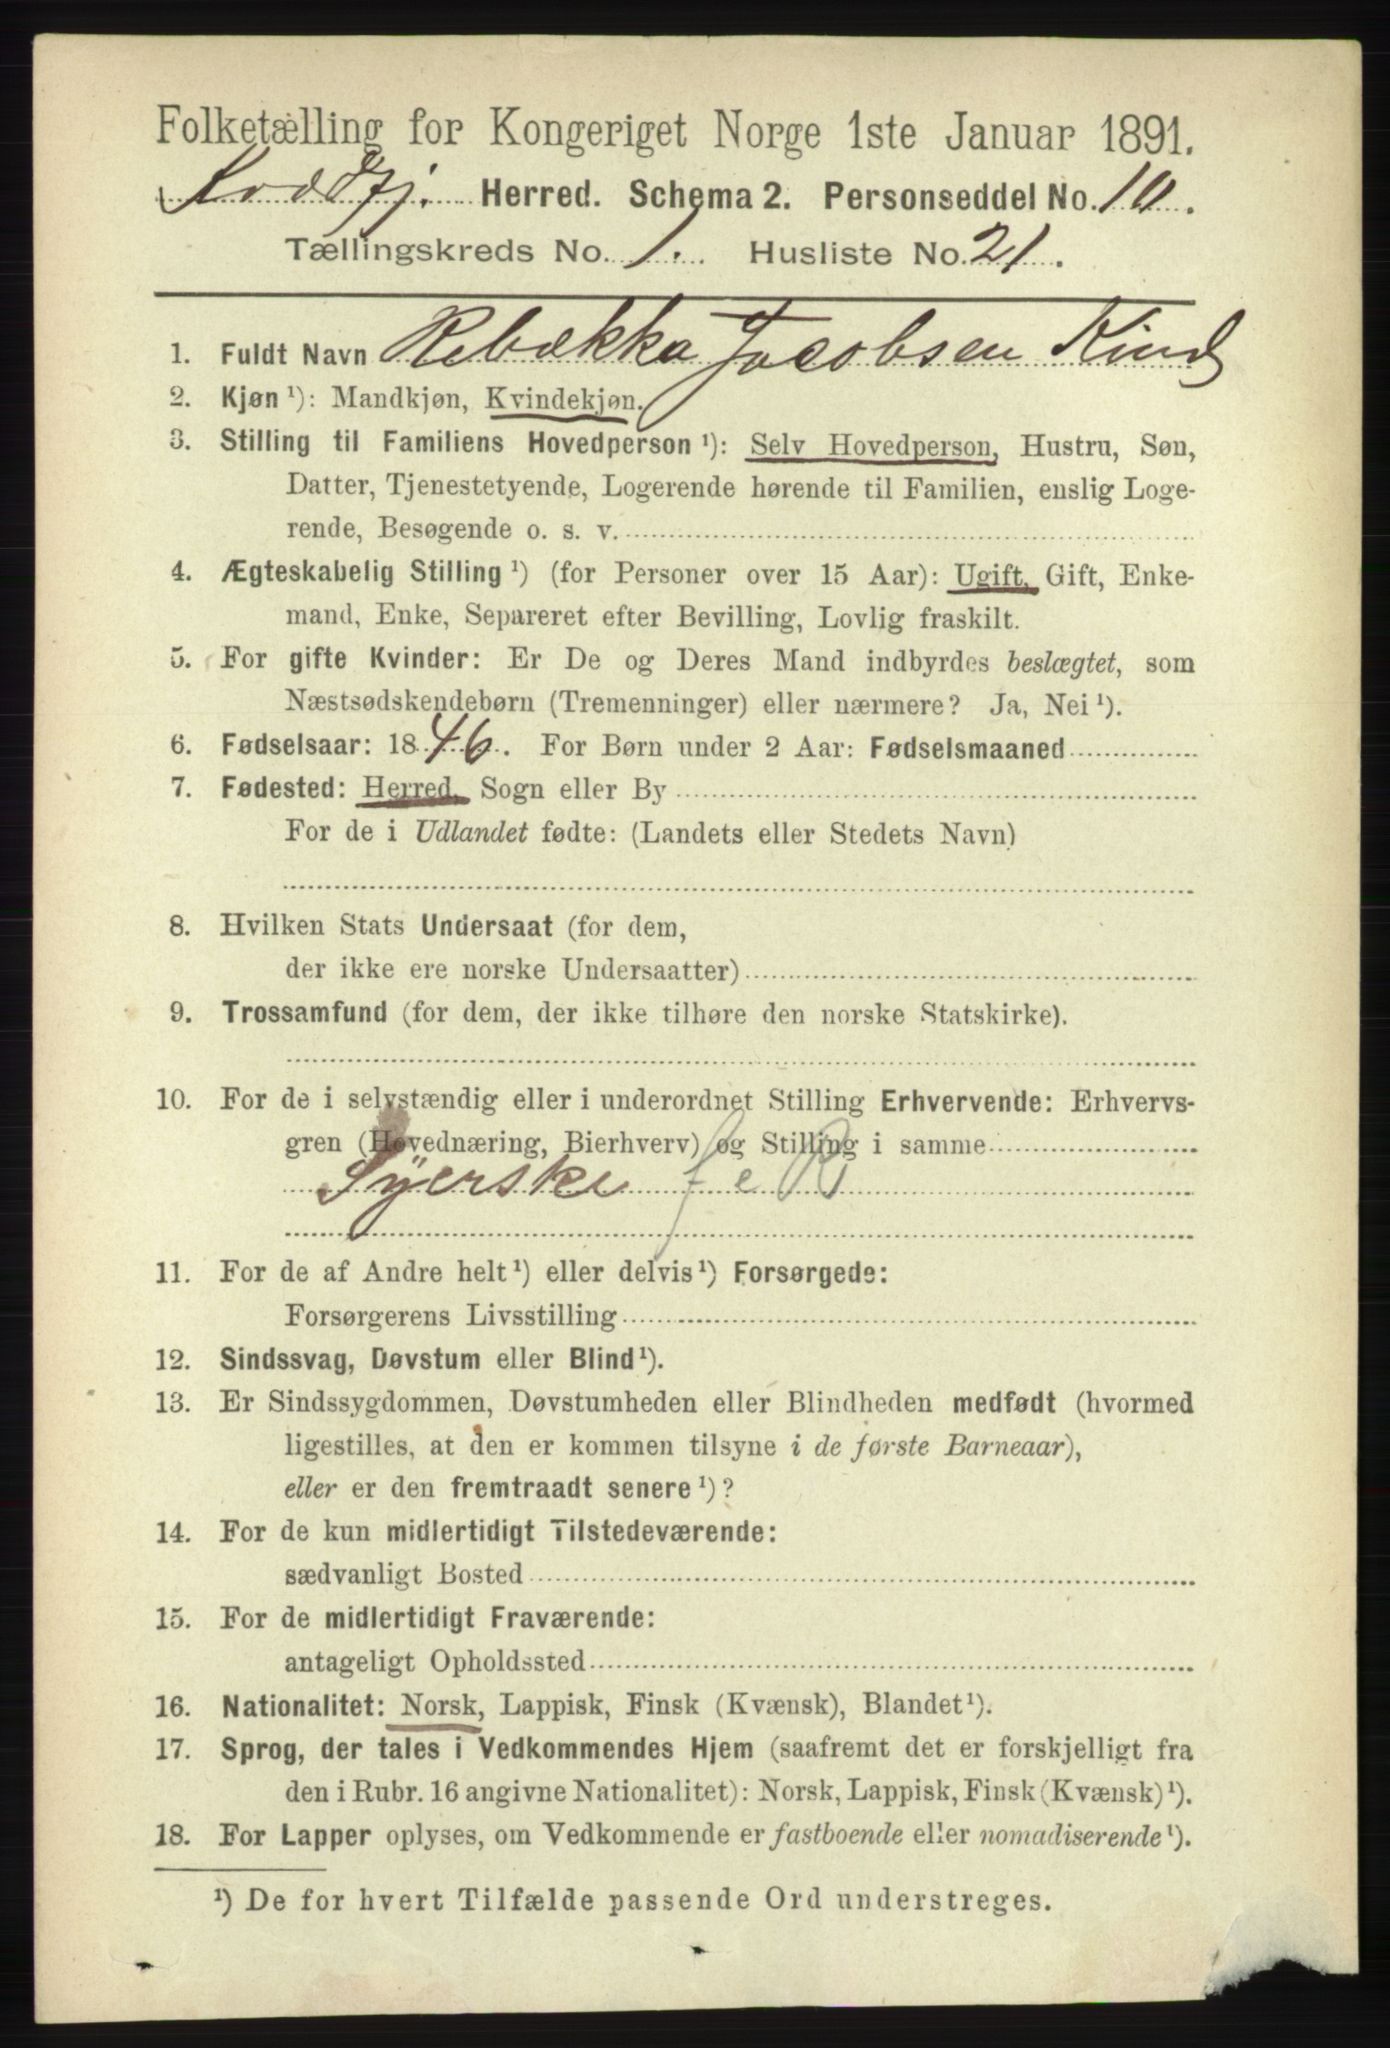 Folketælling for Kongeriget Norge 1ste Januar 1891.
Kvædfj. Herred. Schema 2. Personseddel No. 10.
Tællingskreds No. 1. Husliste No. 21.
1. Fuldt Navn Rebækka Jacobsen Kind
2. Kjøn ¹): Mandkjøn, Kvindekjøn.
3. Stilling til Familiens Hovedperson ¹): Selv Hovedperson, Hustru, Søn,
Datter, Tjenestetyende, Logerende hørende til Familien, enslig Loge-
rende, Besøgende o. s. v.
4. Ægteskabelig Stilling ¹) (for Personer over 15 Aar): Ugift, Gift, Enke-
mand, Enke, Separeret efter Bevilling, Lovlig fraskilt.
5. For gifte Kvinder: Er De og Deres Mand indbyrdes beslægtet, som
Næstsødskendebørn (Tremenninger) eller nærmere? Ja, Nei ¹).
6. Fødselsaar: 1846. For Børn under 2 Aar: Fødselsmaaned
7. Fødested: Herred, Sogn eller By
For de i Udlandet fødte: (Landets eller Stedets Navn)
8. Hvilken Stats Undersaat (for dem,
der ikke ere norske Undersaatter)
9. Trossamfund (for dem, der ikke tilhøre den norske Statskirke).
10. For de i selvstændig eller i underordnet Stilling Erhvervende: Erhvervs-
gren (Hovednæring, Bierhverv) og Stilling i samme
Syerske f e R
11. For de af Andre helt ¹) eller delvis ¹) Forsørgede:
Forsørgerens Livsstilling
12. Sindssvag, Døvstum eller Blind ¹).
13. Er Sindssygdommen, Døvstumheden eller Blindheden medfødt (hvormed
ligestilles, at den er kommen tilsyne i de første Barneaar),
eller er den fremtraadt senere ¹)?
14. For de kun midlertidigt Tilstedeværende:
sædvanligt Bosted
15. For de midlertidigt Fraværende:
antageligt Opholdssted
16. Nationalitet: Norsk, Lappisk, Finsk (Kvænsk), Blandet ¹).
17. Sprog, der tales i Vedkommendes Hjem (saafremt det er forskjelligt fra
den i Rubr. 16 angivne Nationalitet): Norsk, Lappisk, Finsk (Kvænsk) ¹).
18. For Lapper oplyses, om Vedkommende er fastboende eller nomadiserende ¹).
¹) De for hvert Tilfælde passende Ord understreges.